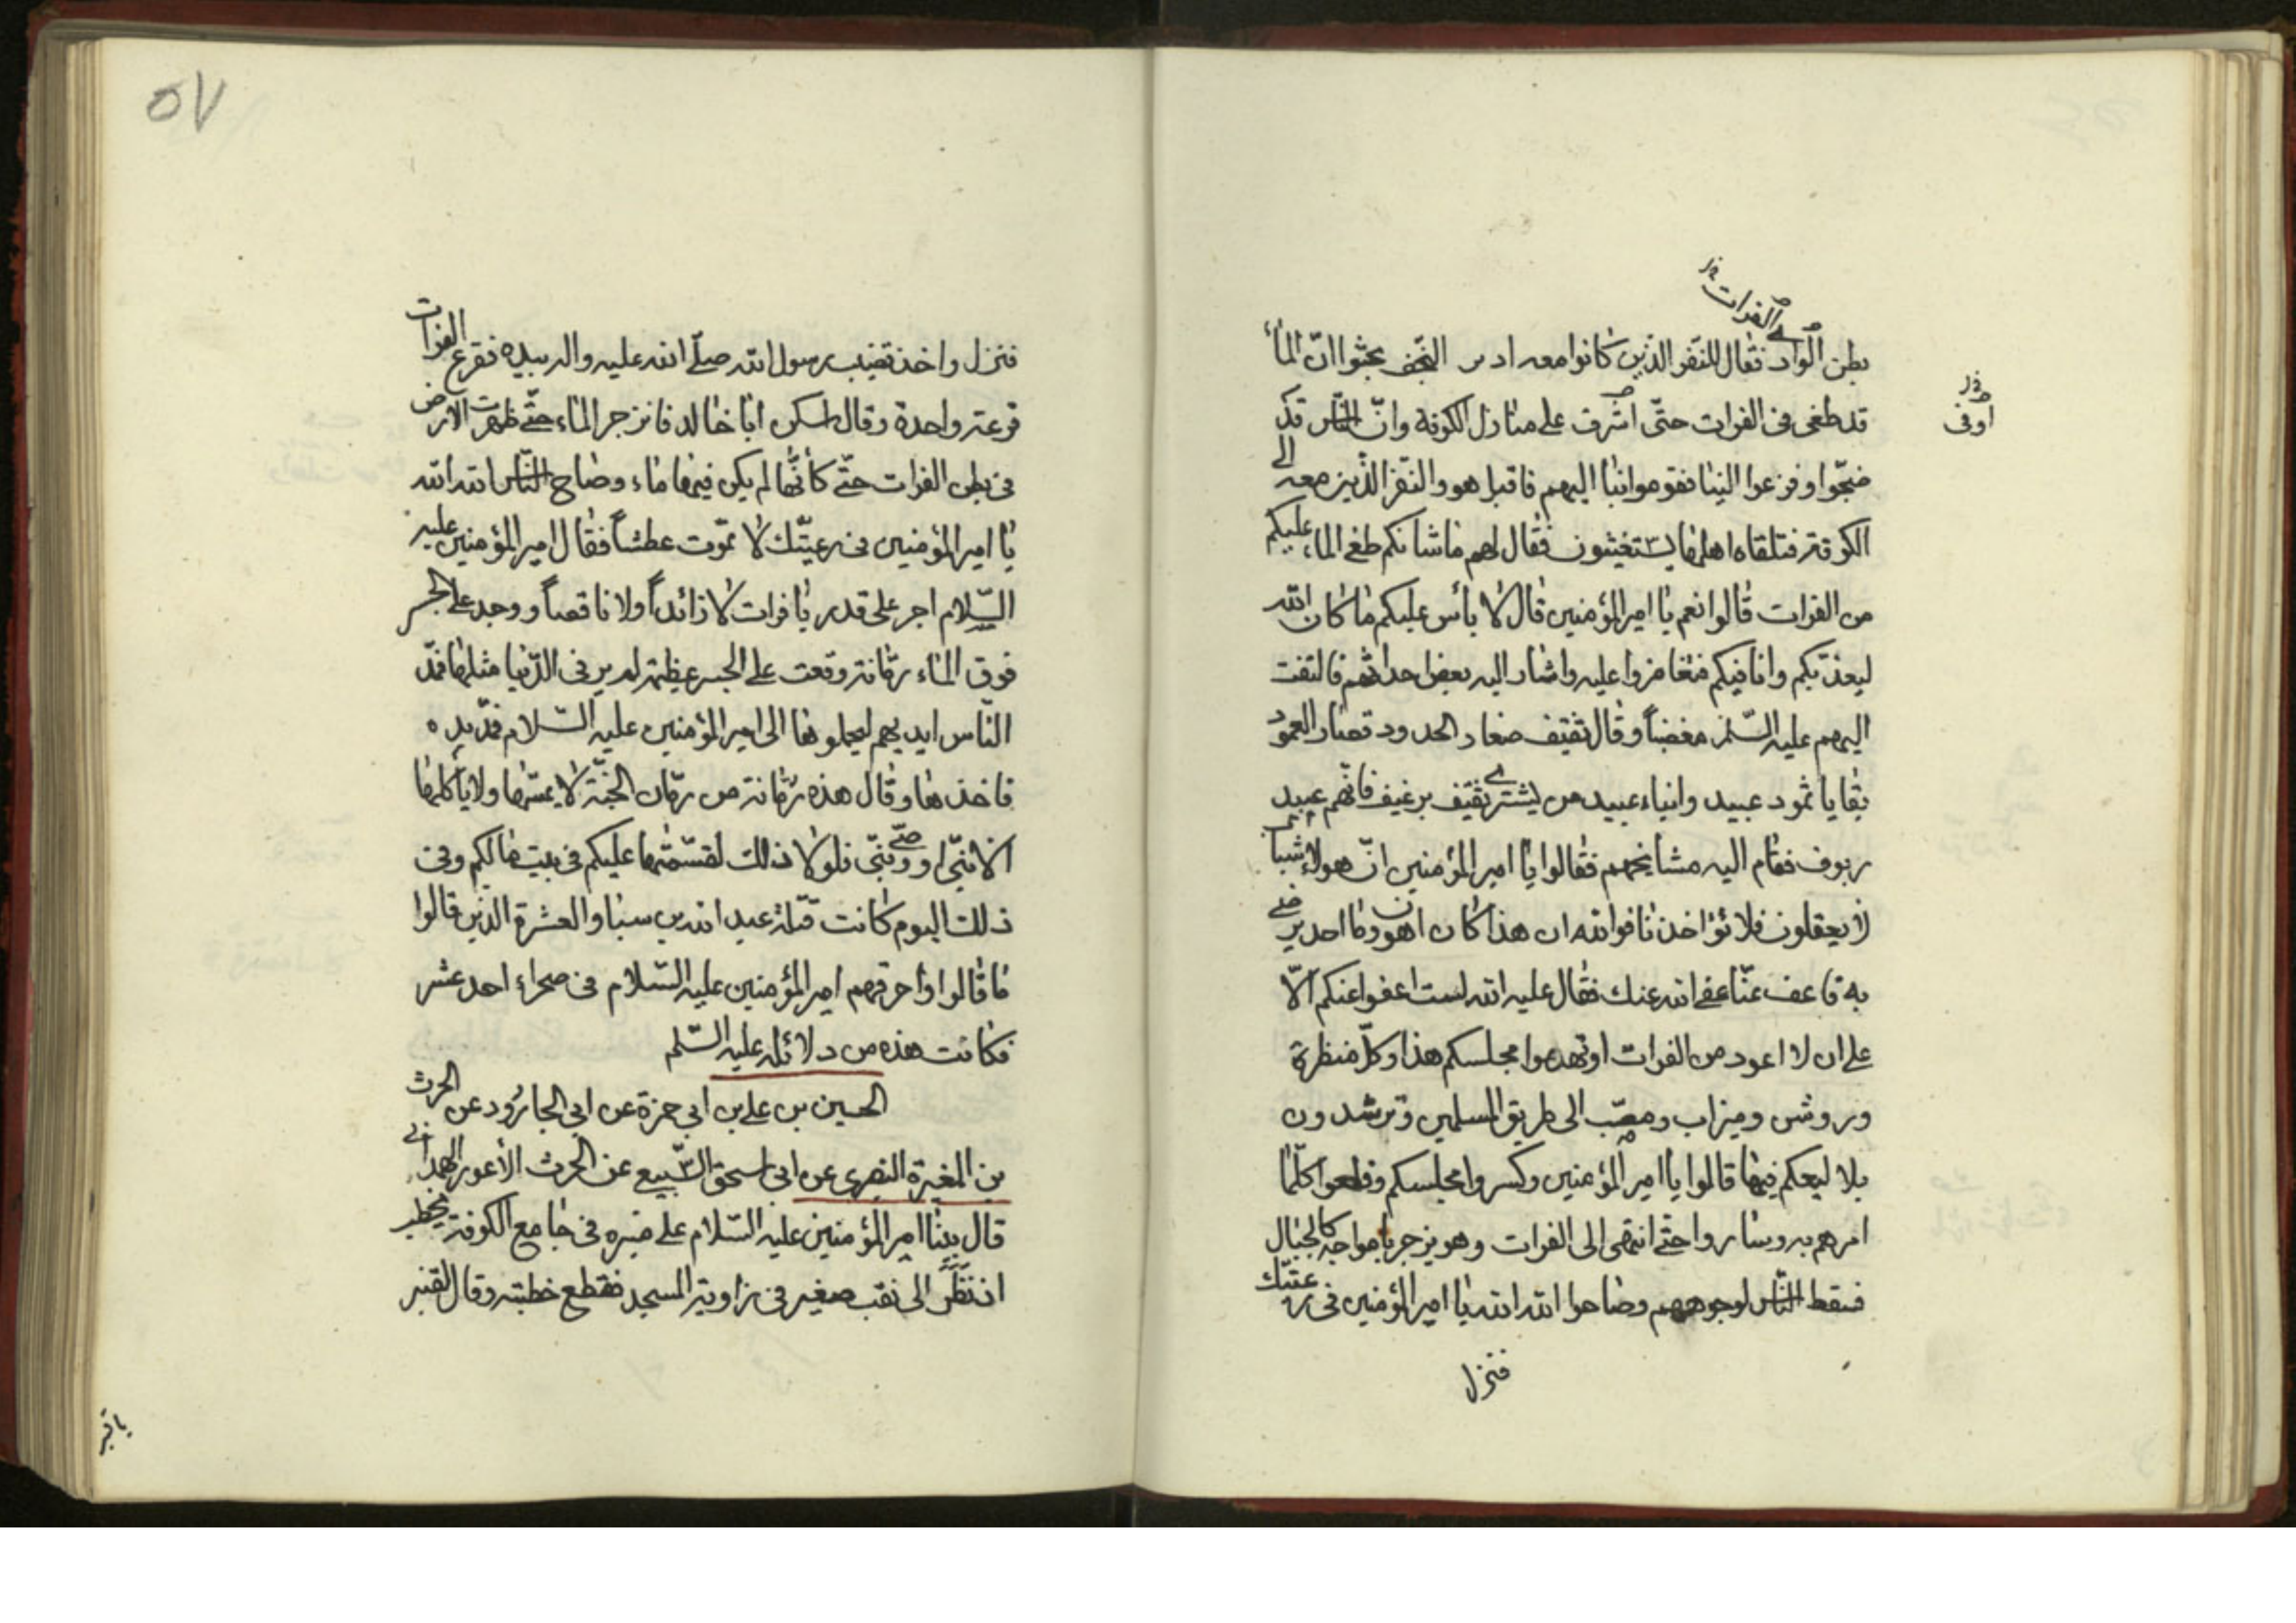 الفرات
بطن الوادي فقال للنفر الذين كانوا معه النجف بحثوا انّ الماء
قد طغى فى الفرات حتّى اشرف على منازل الكوفة وانّ النّاس قد
اوفى
ضجّوا وفزعوا الينا فقوموا بنا اليهم فاقبل هو والنّفر الّذين معه الى
الكوفة فتلقاه اهلها يستغيثون فقال لهم ما شانكم طغى الماء عليكم
من الفرات قالوا نعم يا امير المؤمنين قال لا بأس عليكم ما كان الله
ليعذبكم وانا فيكم فتغامزوا عليه واشار اليه بعض احداثهم فالتفت
اليهم عليه السّلم مغضباً وقال ثقيف صغار الحدود قصار العمود
بقايا ثمود عبيد وابناء عبيد من يشتري ثقيف برغيف فانّهم عبيد
ربوف فقام اليه مشايخهم فقالوا يا امير المؤمنين انّ هولاء شباب
لا يعقلون فلا تؤاخذنا فوالله ان هذا كان اهون وما احد يرضى
به فاعف عنّا عفى الله عنك فقال عليه الله لست اعفوا عنكم الّا
على ان لا اعود من الفرات او تهدموا مجلسكم هذا وكلّ منظرة
وروشن وميزاب ومصبّ الى طريق المسلمين وترشدون
بلا ليعكم فيها قالوا يا امير المؤمنين وكسروا مجلسكم وفلعوا كلّما
امرهم به وساروا حتّى انتهى الى الفرات وهو يزجر بامواجه كالجبال
فسقط النّاس لوجوههم وضاحوا الله الله يا امير المؤمنين فى رعيّتك
فنزل
٥٧
فنزل واخذ قضيب رسول الله صلّى الله عليه واله بيده فقرع الفرات
قرعة واحدة وقال اسكن ابا خالد فانزجر الماء حتّى ظهرت الارض
فى بطن الفرات حتّى كأنّها لم يكن فيها ماء وصاح النّاس الله الله
يا امير المؤمنين فى رعيّتك لا تموت عطشاً فقال امير المؤمنين عليه
السّلام اجر على قدر يا فرات لا زائداً ولا ناقصاً ووجد على الجسر
فوق الماء رمّانة وقعت على الجسر عظيمة لم ير فى الدّنيا مثلها فمدّ
النّاس ايديهم ليحملوها الى امير المؤمنين عليه السّلام فمدّ يده
فاخذها وقال هذه رمّانة من رمّان الجنّة لا يمسّها ولا يأكلها
الا نبّى او وصّى نبّى فلولا ذلك لقسّمتها عليكم فى بيت مالكم وفى
ذلك اليوم كانت قتلة عبد الله بن سبا والعشرة الذين قالوا
ما قالوا واحرقهم امير المؤمنين عليه السّلام فى صحراء احد عشر
فكانت هذه من دلائله عليه السّلم
الحسين بن على بن ابي حمزة عن ابي الجارود عن الحرث
بن المغيرة النصرى عن ابى اسحق السّبيع عن الحرث الأعور الهمدانى
قال بينا امير المؤمنين عليه السّلام على منبره فى جامع الكوفة يخطب
اذ نظر الى نقب صغير فى زاوية المسجد فقطع خطبته وقال لقنبر
يا قنبر